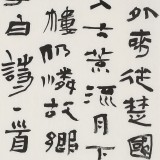 外來從楚國
入大荒流月下
樓仍憐故鄉
白詩一首